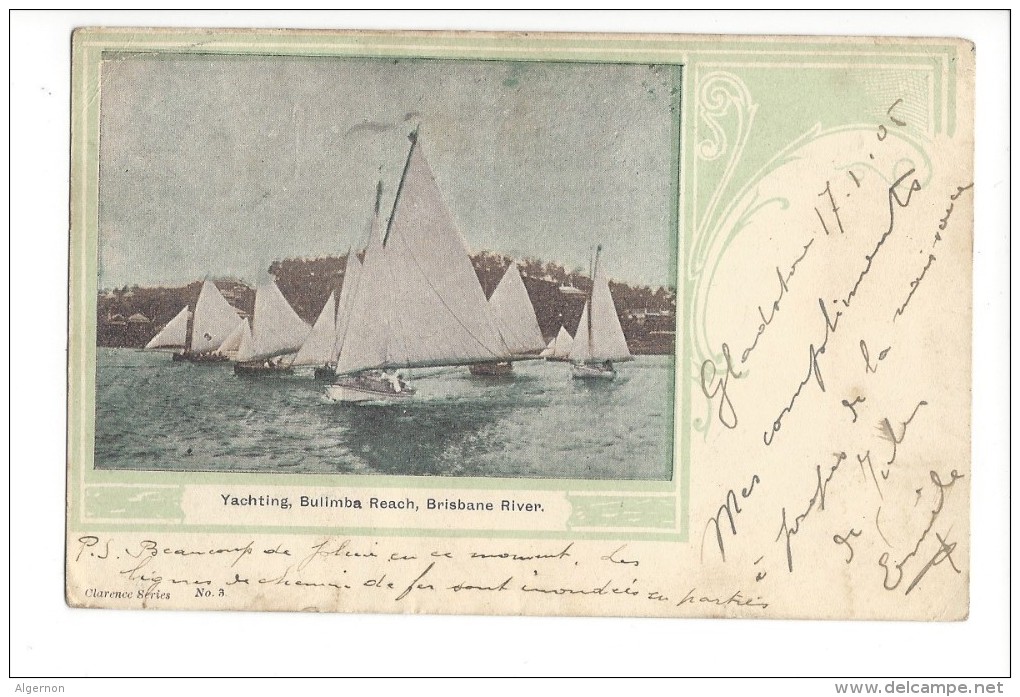 Gladstone 17.1.05
Mes compliments
à propos de la naissance
de Jules
Emile
Yachting, Bulimba Reach, Brisbane River.
P.S. Beaucoup de pluie en ce moment. Les
lignes de chemin de fer sont inondées en parties
Clarence Series No. 3
Algernon
www.delcampe.net